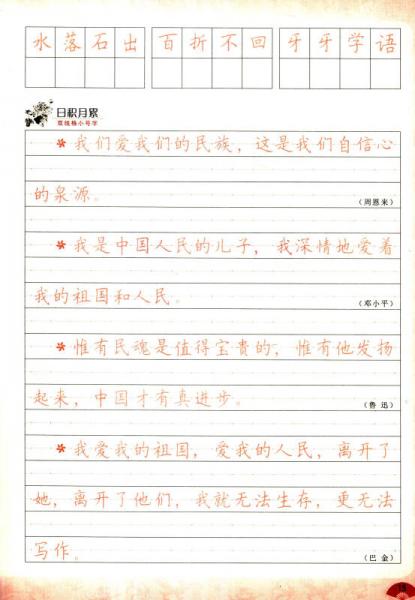 水落石出 百折不回 牙牙学语
日积月累
双线格小号字
*我们爱我们的民族，这是我们自信心
的泉源。 （周恩来）
*我是中国人民的儿子，我深情地爱着
我的祖国和人民。 （邓小平）
*惟有民魂是值得宝贵的，惟有他发扬
起来，中国才有真进步。 （鲁迅）
*我爱我的祖国，爱我的人民，离开了
她，离开了他们，我就无法生存，更无法
写作。 （巴金）